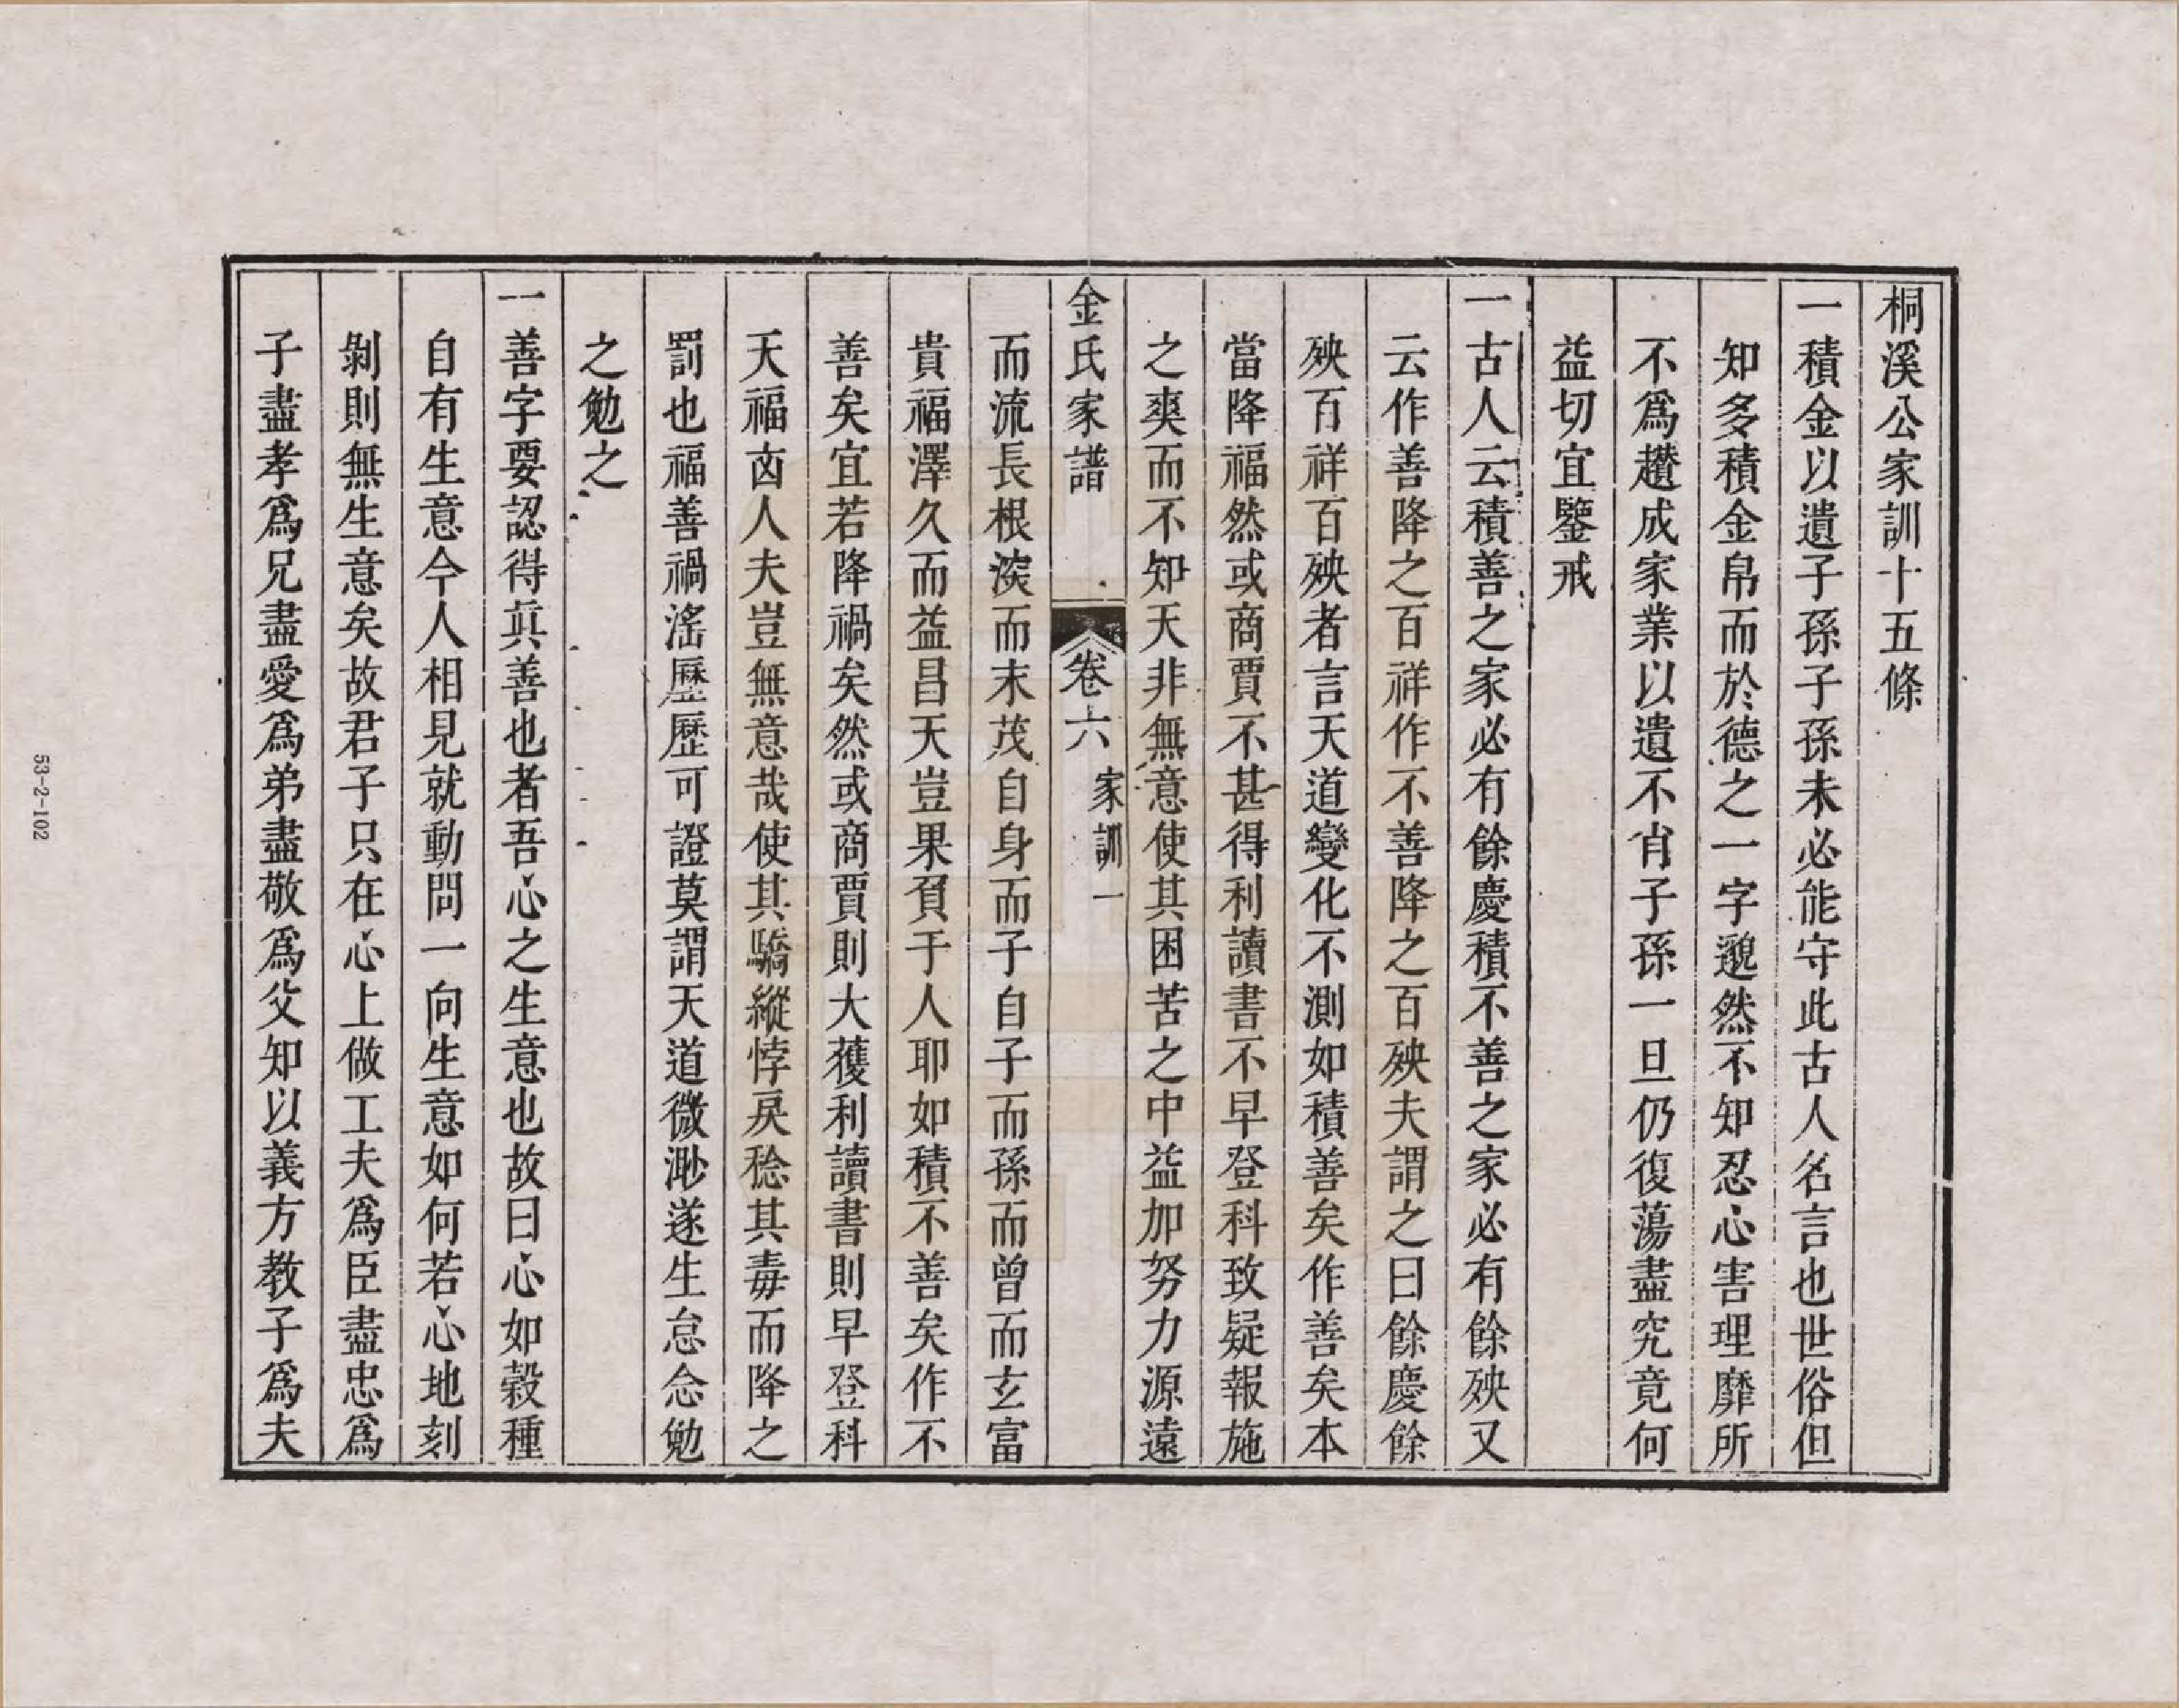 桐溪公家訓十五條
一積金以遺子孫子孫未必能守此古人名言也世俗但
知多積金帛而於德之一字邈然不知忍心害理靡所
不爲趲成家業以遺不肖子孫一旦仍復蕩盡究竟何
益切宜鑒戒
一古人云積善之家必有餘慶積不善之家必有餘殃又
云作善降之百祥作不善降之百殃夫謂之曰餘慶餘
殃百祥百殃者言天道變化不測如積善矣作善矣本
當降福然或商賈不甚得利讀書不早登科致疑報施
之爽而不知天非無意使其困苦之中益加努力源遠
金氏家譜 卷六 家訓 一
而流長根深而末茂自身而子自子而孫而曾而玄富
貴福澤久而益昌天豈果負于人耶如積不善矣作不
善矣宜若降禍矣然或商賈則大獲利讀書則早登科
天福凶人夫豈無意哉使其驕縱悖戾稔其毒而降之
罰也福善禍淫歷歷可證莫謂天道微渺遂生怠念勉
之勉之
一善字要認得眞善也者吾心之生意也故曰心如穀種
自有生意今人相見就動問一向生意如何若心地刻
剝則無生意矣故君子只在心上做工夫爲臣盡忠爲
子盡孝爲兄盡愛爲弟盡敬爲父知以義方教子爲夫
53-2-102